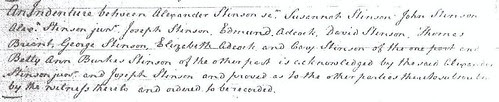 An Indenture between Alexander Stinson senr. Susannah Stinson John Stinson
Alexr. Stinson junr. Joseph Stinson, Edmund Adcock, David Stinson, Thomas
Briant, George Stinson, Elizabeth Adcock and Cary Stinson of the one part and
Betty Ann Burks Stinson of the other part is acknowledged by the said Alexander
Stinson junr. and Joseph Stinson and proved as to the other parties thereto subscribed
by the witness thereto and ordered to be recorded.